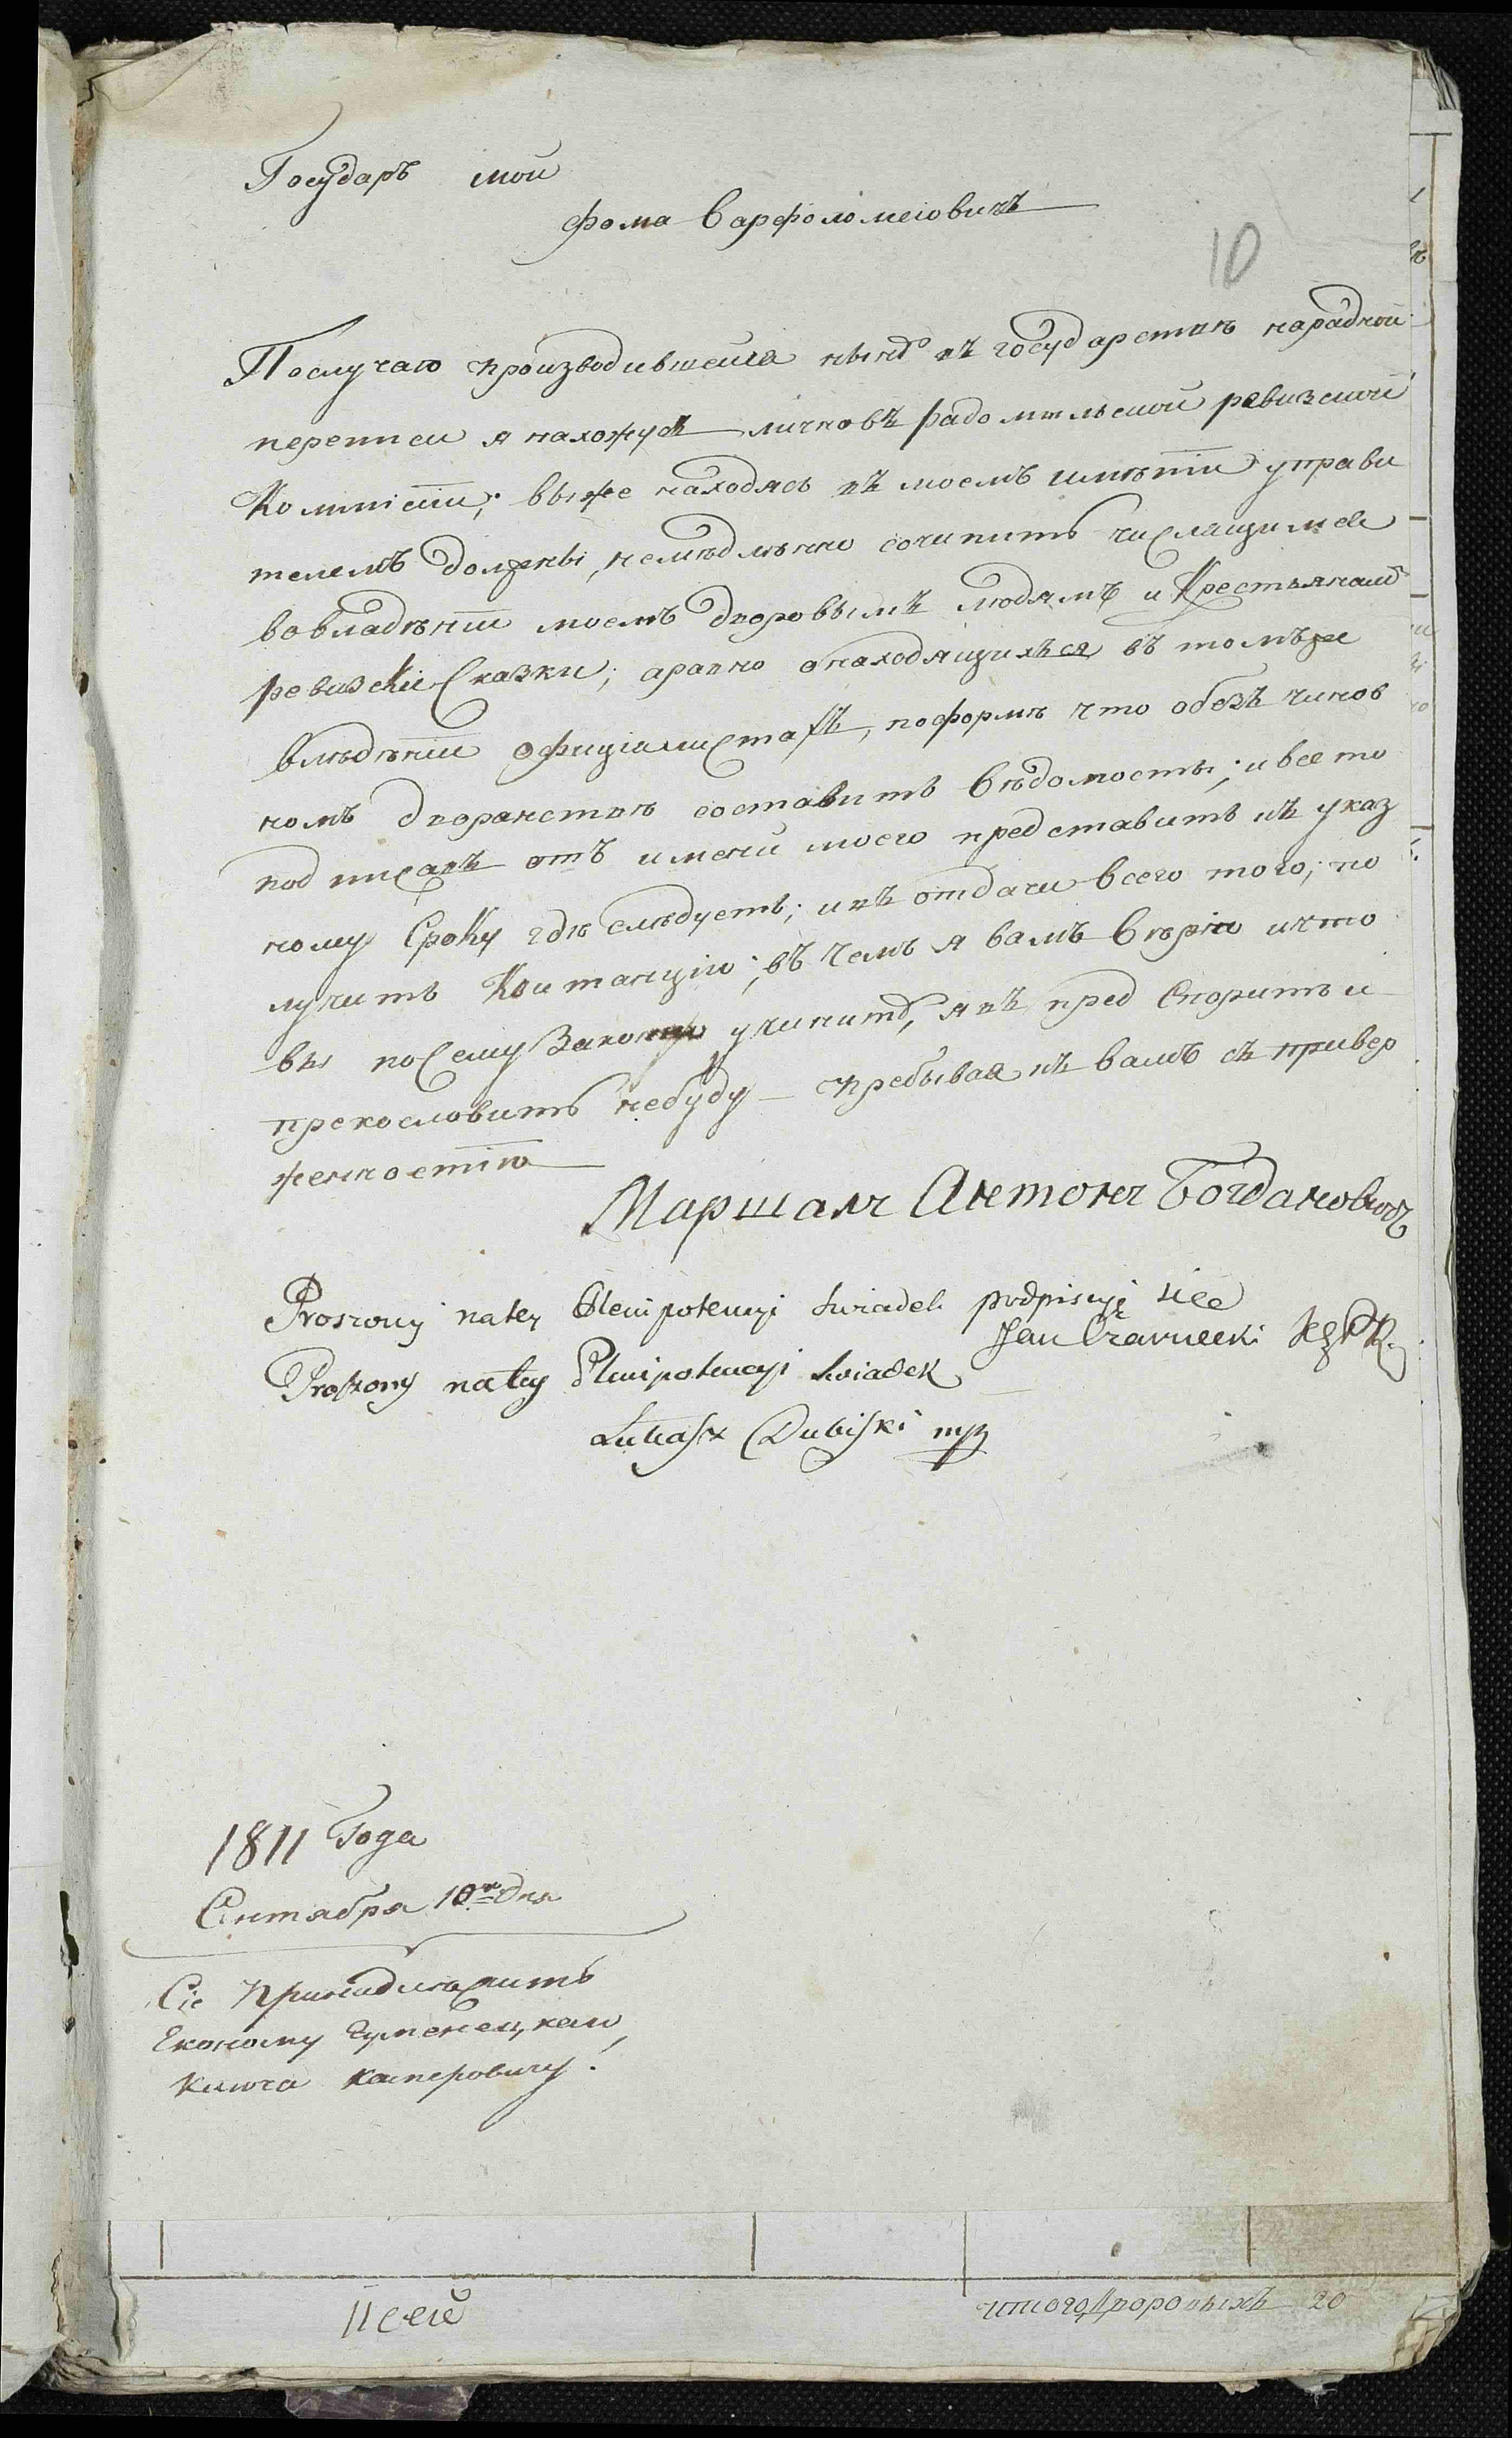 Государь мой
Фома Варфоломеювичъ
10
Послучаю производившейся нынѣ въ государствѣ народной
переписи я нахожусь личновъ радомыльской ревизской
Коммісіи; выже находясь въ моемъ имѣніи управи
телемъ должны, немѣдлѣнно сочинить числящимся
вовладѣніи моемъ дворовымъ людямъ и Крестьянамъ
ревизскіе Сказки; аравно онаходящихъся въ томъже
влѣдѣніи официалистахъ, поформѣ что обезъ чинов
номъ дворянствѣ составить вѣдомость; и все то
подписавъ отъ имени моего представить къ указ
ному Сроку гдѣ слѣдуетъ; ивъ отдачи всего того, по
лучить Квитанцію; въ чемъ я вамъ вѣрю ичто
вы посему Законно учините, явъ пред Спорить и
прекословить небуду — пребывая къ вамъ съ привер
женностію
Маршалъ Антонъ Богдановичъ
Proszony natey Plenipotencyi swiadek podpisuię siee
Jan Czarnecki
Proszony natey Plenipotencyi swiadek
Łukasz Dubiski mp
1811 Года
Сентября 10го Дня
Сіе принадилежитъ
Економу
Ключа Касперовичу.
Итого дворовыхъ 20